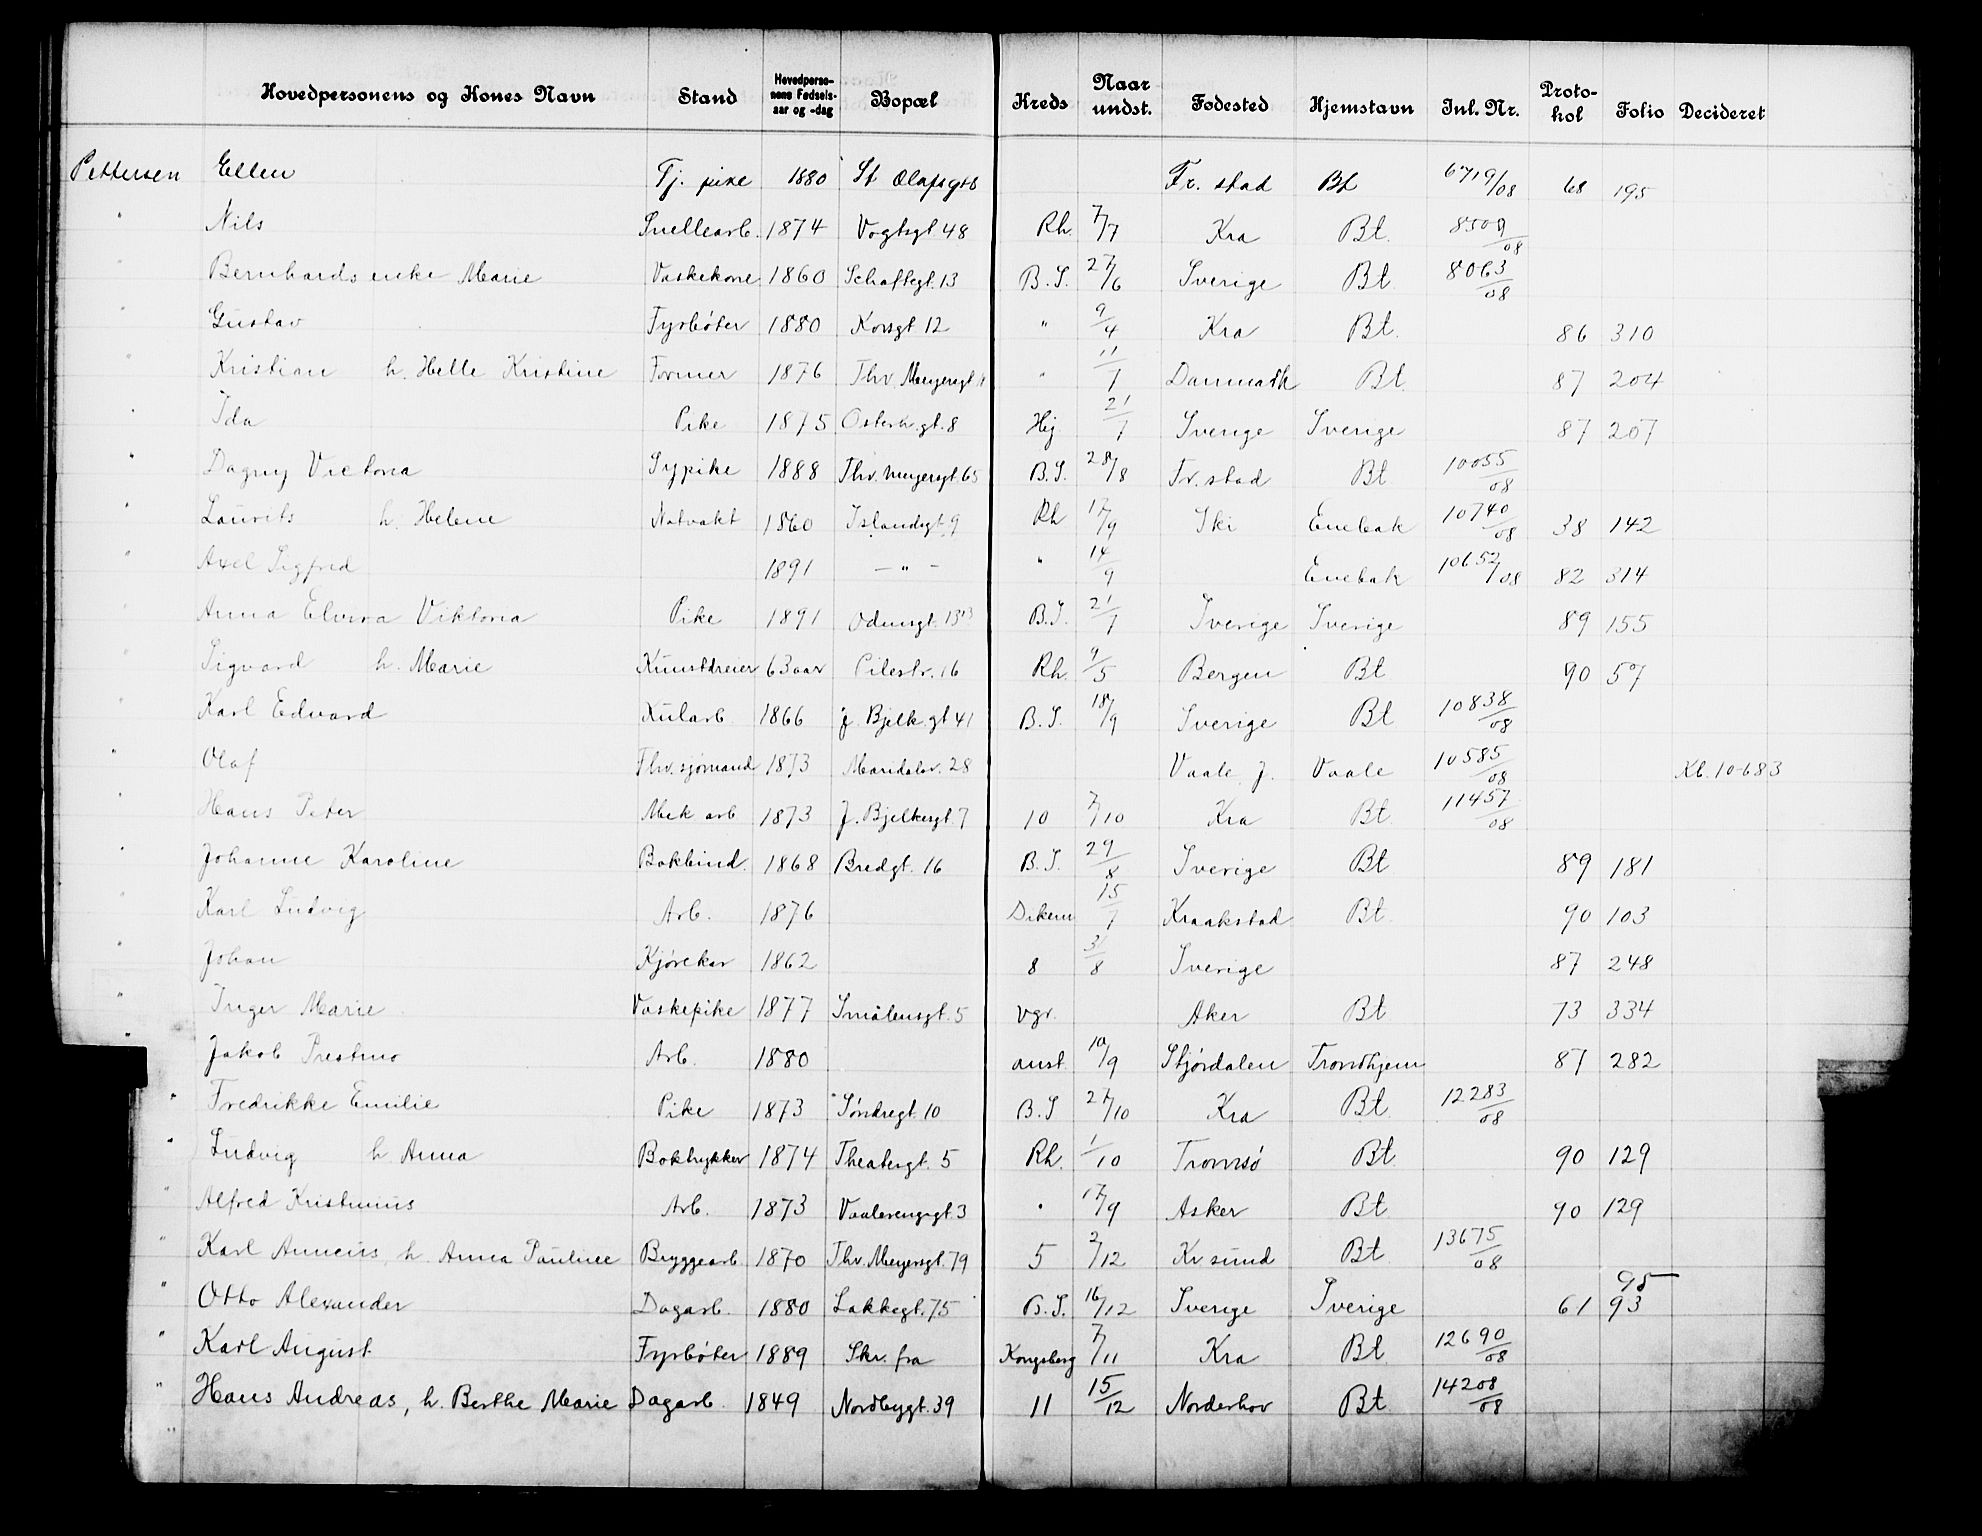 Hovedpersonens og Kones Navn Stand Hovedperso- nens Fødsels- aar og -dag Bopæl Kreds Naar undst. Fødested Hjemstavn Inl. Nr. Proto- kol Folio Decideret
Pettersen Ellen Tj. pike 1880 St Olafsgt 6 Fr. stad Bt 6719/08 68 195
" Nils Snellearb. 1874 Vogtsgt 48 Rh. 7/7 Kra Bt. 8509/08
" Bernhards enke Marie Vaskekone 1860 Schaftegt. 13 B. S. 27/6 Sverige Bt 8063/08
" Gustav Fyrbøter 1880 Korsgt 12 " 9/4 Kra Bt. 86 310
" Kristian h. Helle Kristine Former 1876 Thv. Meyersgt " 11/7 Danmark Bt. 87 204
" Ida Pike 1875 Osterh.gt. 8 Hej 21/7 Sverige Sverige 87 207
" Dagny Victoria Sypike 1888 Thv. Meyersgt. 65 B.S. 28/8 Fr. stad Bt 10055/08
" Laurits h. Helene Natvakt 1860 Islandsgt. 9 Rh 17/9 Ski Enebak 10740/08 38 142
" Axel Sigfred 1891 - " - " 14/9 Enebak 10652/08 82 314
" Anna Elvira Viktoria Pike 1891 Odinsgt. 13 B.S. 21/7 Sverige Sverige 89 155
" Sigvard h. Marie Kunstdreier 63 aar Pilestr. 16 Rh. 9/5 Bergen Bt 90 57
" Karl Edvard Kularb. 1866 J. Bjelk.gt 41 B. S. 18/9 Sverige Bt 10838/08
" Olaf Fhv. sjømand 1873 Maridalsv. 28 Vaale J. Vaale 10585/08 Kl. 10-683
" Hans Peter Mek arb 1873 J. Bjelkesgt. 7 10 7/10 Kra Bt. 11457/08
" Johanne Karoline Bokbind. 1868 Bredgt. 16 B. S. 29/8 Sverige Bt 89 181
" Karl Ludvig Arb. 1876 Dikem 15/7 Kraakstad Bt. 90 103
" Johan Kjørekar 1862 8 3/8 Sverige 87 248
" Inger Marie Vaskepike 1877 Smålensgt. 5 Vgr. Aker Bt 73 334
" Jakob Prestmo Arb. 1880 anst. 10/9 Stjørdalen Trondhjem 87 282
" Fredrikke Emilie Pike 1873 Søndregt. 10 B. S 27/10 Kra Bt. 12283/08
" Ludvig h Anna Boktrykker 1874 Theatergt. 5 Rh. 1/10 Tromsø Bt. 90 129
" Alfred Kristinius Arb. 1873 Vaalerenggt. 3 " 17/9 Asker Bt 90 129
" Karl Anneius, h. Anna Pauline Bryggearb. 1870 Thv. Meyersgt. 79 5 2/12 Kr sund Bt 13675/08
" Otto Alexander Dagarb. 1880 Lakkegt. 75 B. S. 16/12 Sverige Sverige 61 95 93
" Karl August Fyrbøter 1889 Skr. fra Kongsberg 7/11 Kra Bt 12690/08
" Hans Andreas, h. Berthe Marie Dagarb. 1849 Nordbygt. 39 11 15/12 Norderhov Bt. 14208/08